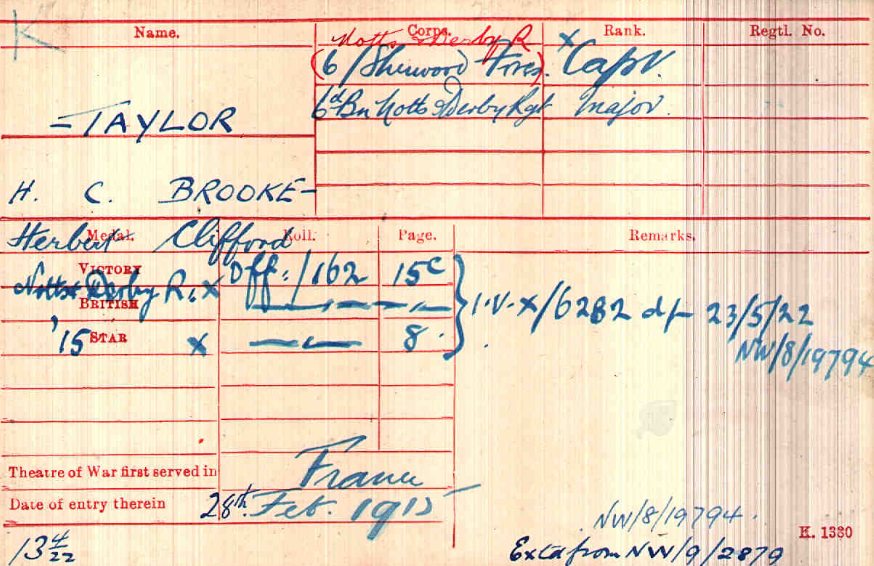 K
Name. Corps. Rank. Regtl. No.
Notts & Derby R
(6/Sherwood Fors.) x Capt.
6th Bn Notts & Derby Rgt Major.
-TAYLOR
H. C. BROOKE-
Herbert Clifford
Medal. Roll. Page. Remarks.
VICTORY Off:/162 15C
Notts & Derby R. x
BRITISH
I.V. x/6282 df 23/5/22
'15 STAR x 8.
NW/8/19794
Theatre of War first served in France
Date of entry therein 28th Feb. 1915
NW/8/19794.
K. 1380
13 4/22
Ext from NW/9/2879